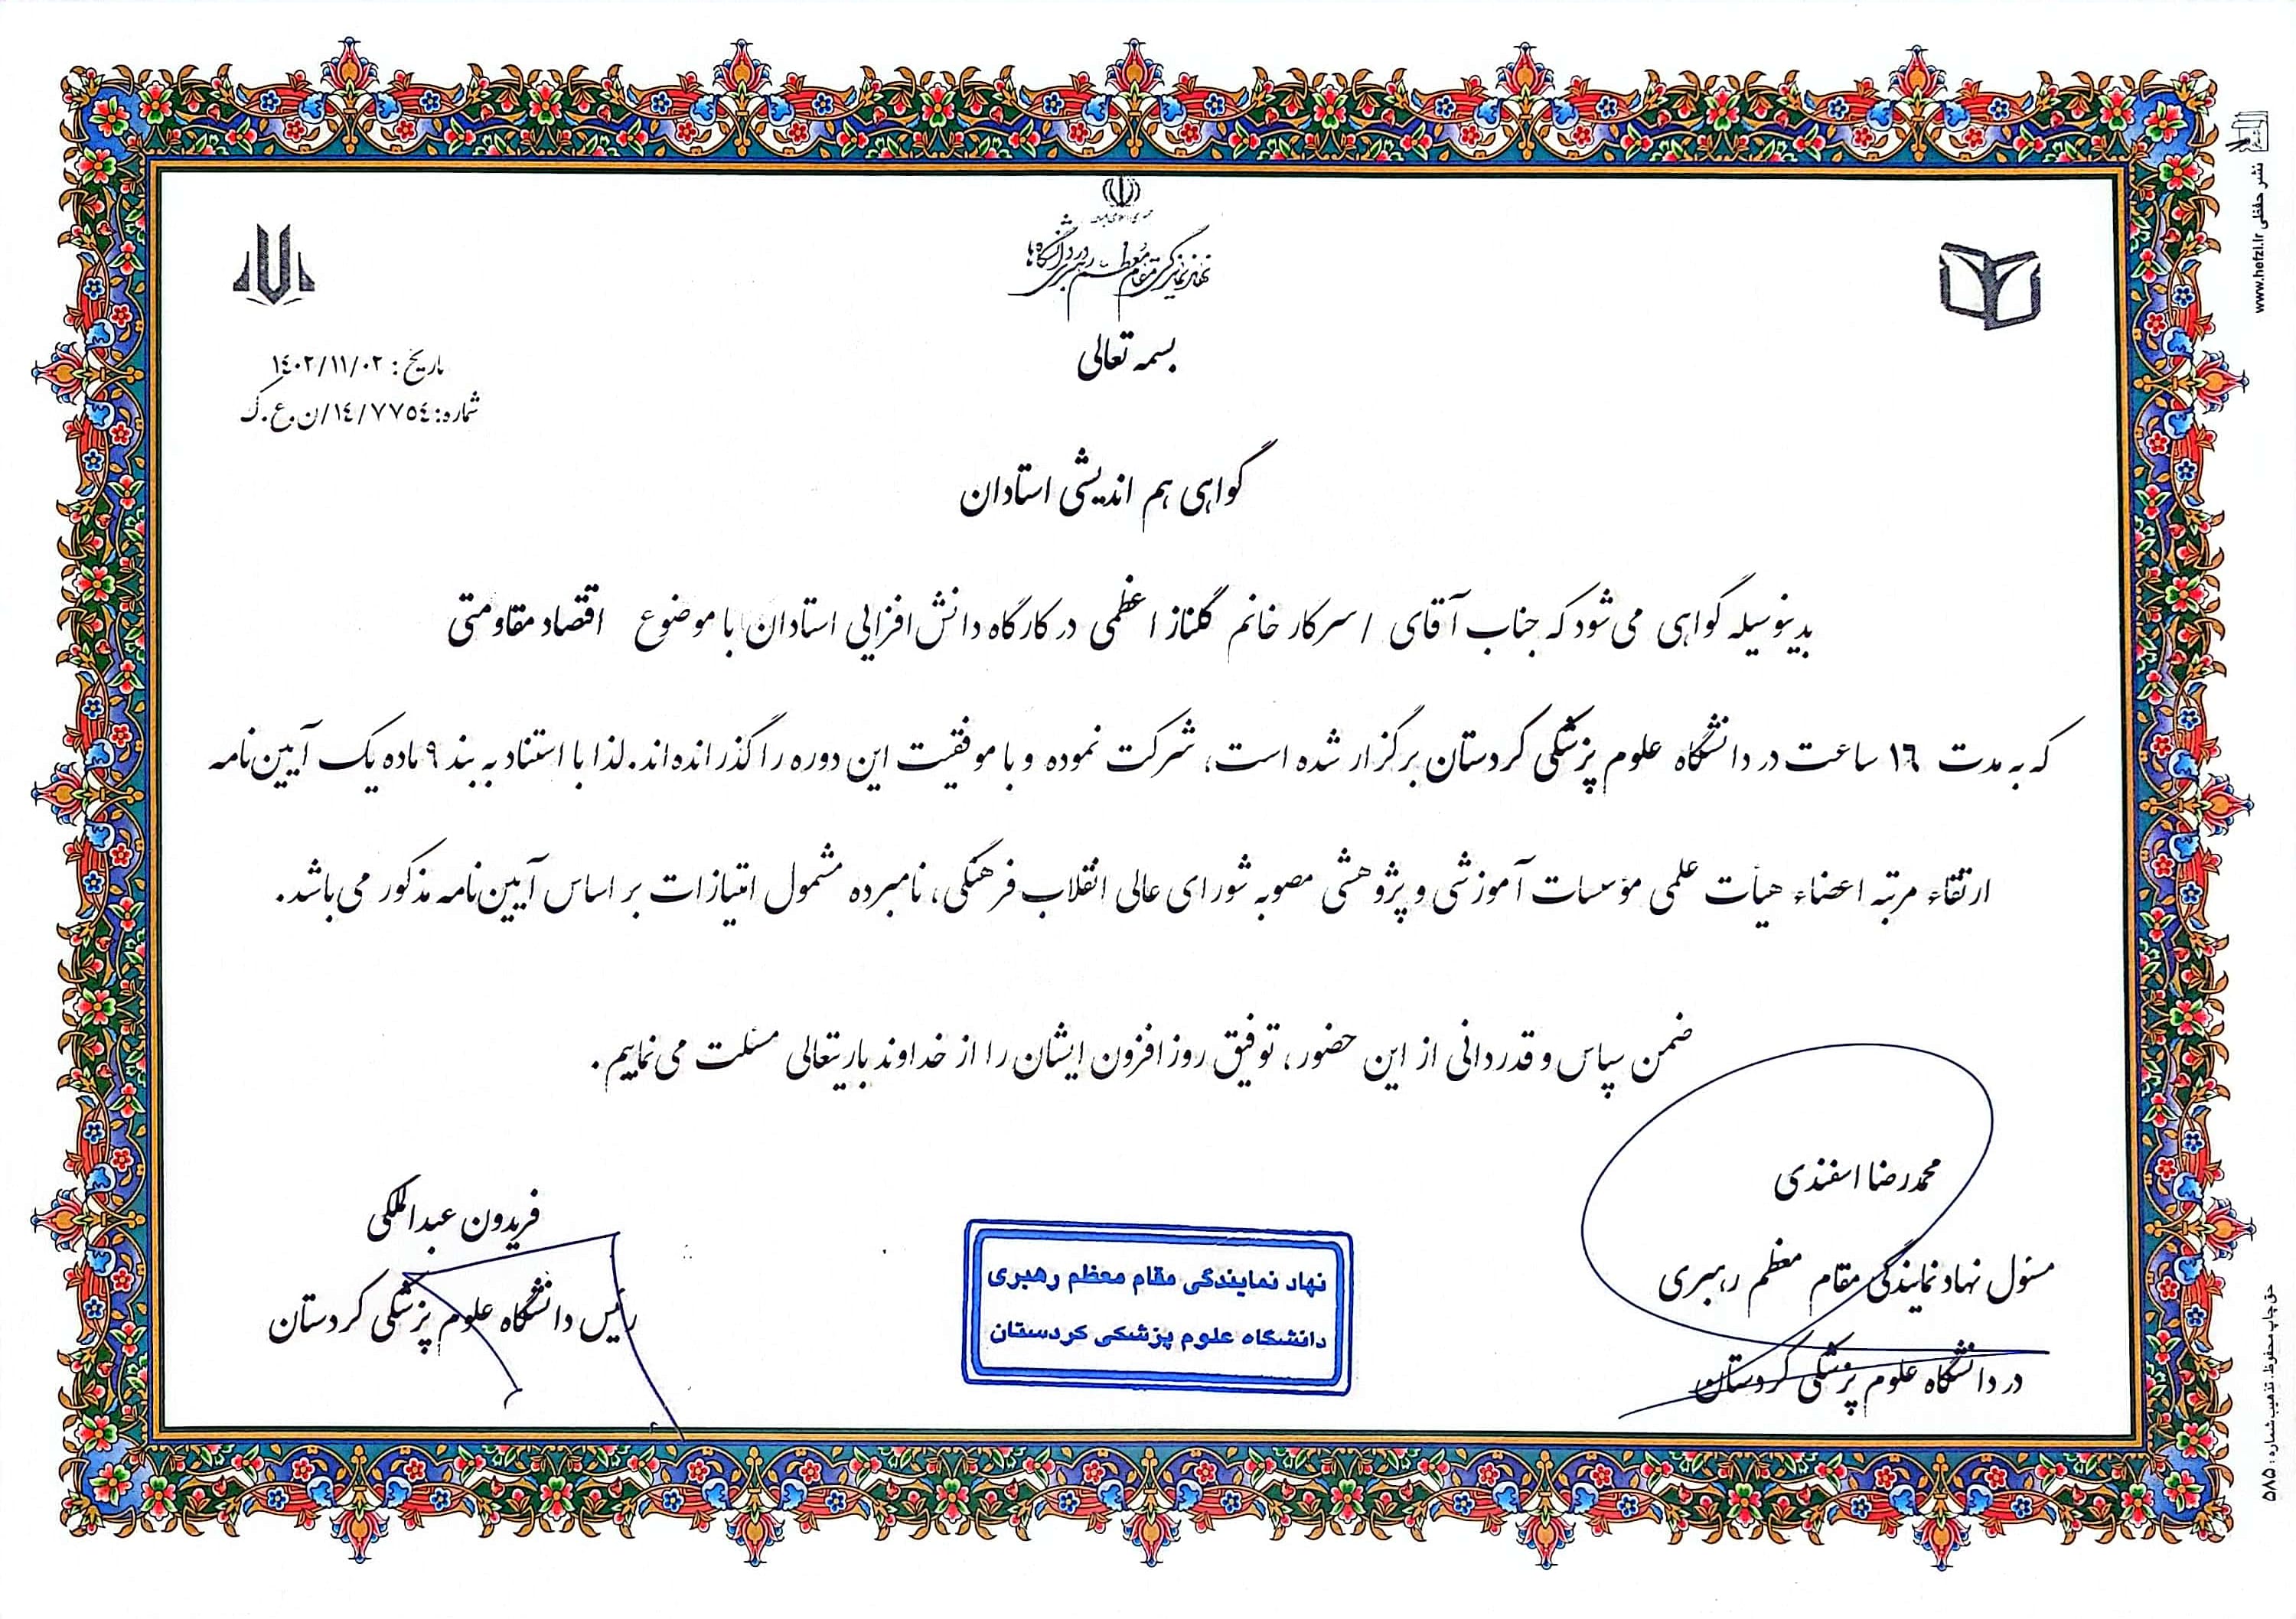 جمهوری اسلامی ایران
نهاد نمایندگی مقام معظم رهبری در دانشگاه‌ها
بسمه تعالی
تاریخ: ۱٤۰۲/۱۱/۰۲
شماره: ۱٤/۷۷٥٤/ن.ع.ک
گواهی هم اندیشی استادان
بدینوسیله گواهی می‌شود که جناب آقای / سرکار خانم گلناز اعظمی در کارگاه دانش افزایی استادان با موضوع اقتصاد مقاومتی
که به مدت ۱٦ ساعت در دانشگاه علوم پزشکی کردستان برگزار شده است، شرکت نموده و با موفقیت این دوره را گذرانده‌اند. لذا با استناد به بند ۹ ماده یک آیین‌نامه
ارتقاء مرتبه اعضاء هیأت علمی مؤسسات آموزشی و پژوهشی مصوبه شورای عالی انقلاب فرهنگی، نامبرده مشمول امتیازات بر اساس آیین‌نامه مذکور می‌باشد.
ضمن سپاس و قدردانی از این حضور، توفیق روزافزون ایشان را از خداوند باریتعالی مسئلت می‌نماییم.
محمدرضا اسفندی
مسئول نهاد نمایندگی مقام معظم رهبری
در دانشگاه علوم پزشکی کردستان
نهاد نمایندگی مقام معظم رهبری
دانشگاه علوم پزشکی کردستان
فریدون عبدالملکی
رئیس دانشگاه علوم پزشکی کردستان
نشر حفظی www.hefzi.ir
حق چاپ محفوظ. تذهیب شماره: ۵۸۵